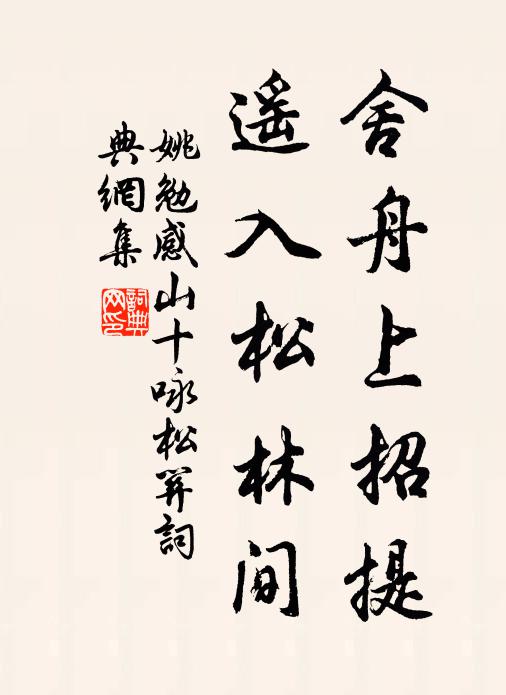 舍舟上招提
遥入松林间
姚勉感山十咏松关词
典網集
詞典
网印